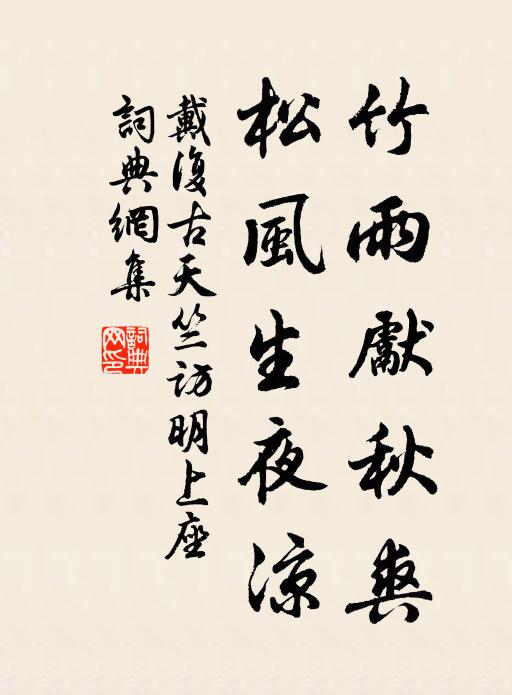 竹雨獻秋爽
松風生夜涼
戴復古天竺訪明上座
詞典網集
詞典網印